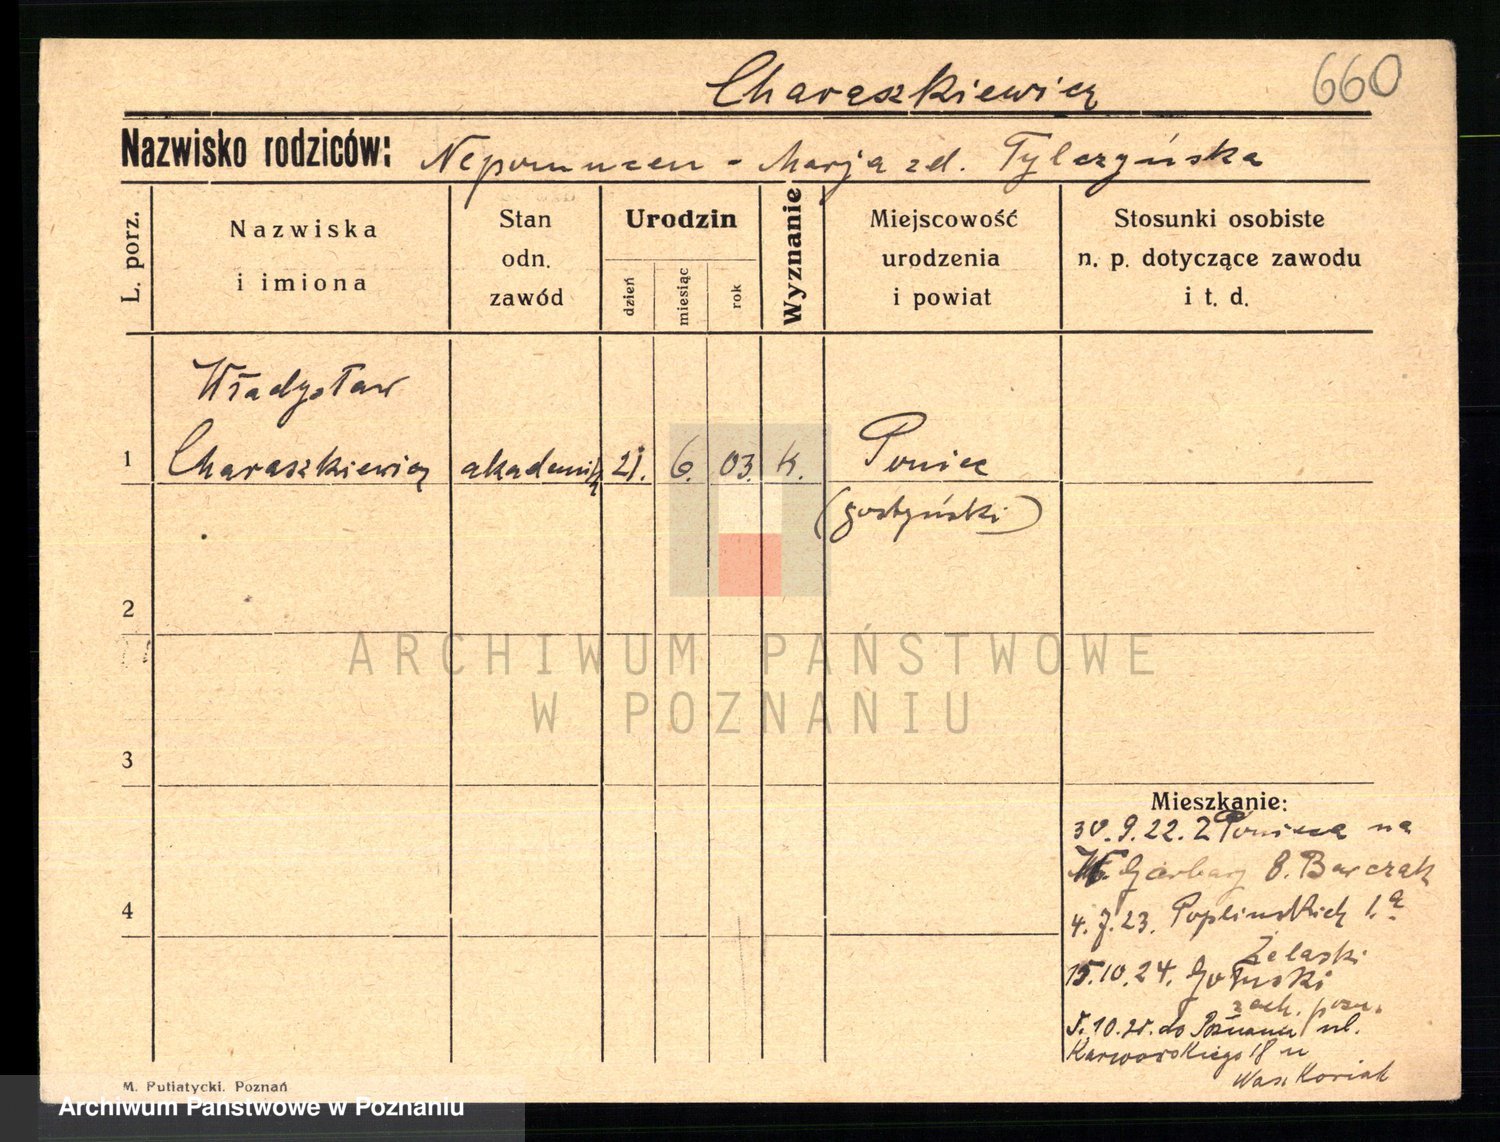 660
Charaszkiewicz
Nazwisko rodziców: Nepomucen - Marja zd. Tylczyńska
L. porz.
Nazwiska
i imiona
Stan
odn.
zawód
Urodzin
dzień
miesiąc
rok
Wyznanie
Miejscowość
urodzenia
i powiat
Stosunki osobiste
n. p. dotyczące zawodu
i t. d.
Władysław
1 Charaszkiewicz akademik 21. 6. 03. K. Poniec
(gostyński)
2
ARCHIWUM PAŃSTWOWE
W POZNANIU
3
Mieszkanie:
30.9.22. z Ponieca na
W. Garbary 8. Barczak
4
4.7.23. Poplinskich 1.a
Zelaski
15.10.24. Gołuski
zach. pozn.
5.10.25. do Poznania ul.
Karwowskiego 18 u
Waszkoriak
M. Putiatycki. Poznań
Archiwum Państwowe w Poznaniu